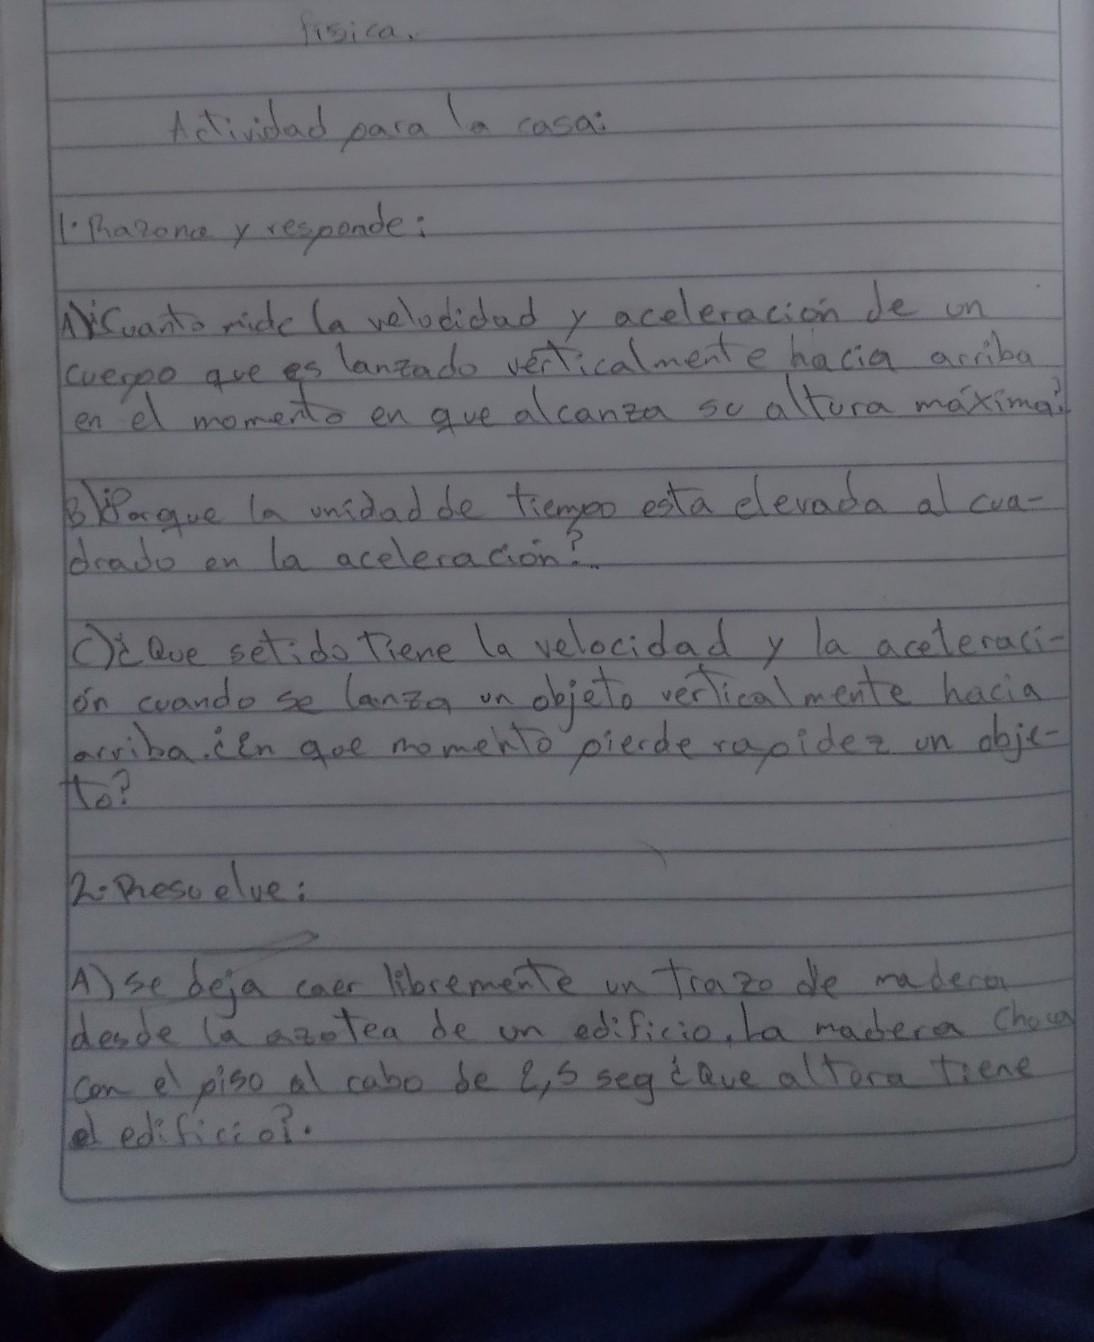 física.
Actividad para la casa:
1. Razona y responde:
A) ¿Cuanto mide la velodidad y aceleración de un
cuerpo que es lanzado verticalmente hacia arriba
en el momento en que alcanza su altura máxima?
B) ¿Porque la unidad de tiempo esta elevada al cua-
drado en la aceleración?
C) ¿Que setido tiene la velocidad y la aceleraci-
ón cuando se lanza un objeto verticalmente hacia
arriba. ¿en que momento pierde rapidez un obje-
to?
2. Resuelve:
A) se deja caer libremente un trazo de madera
desde la azotea de un edificio, La madera choca
con el piso al cabo de 2,5 seg ¿Que altura tiene
el edificio?.